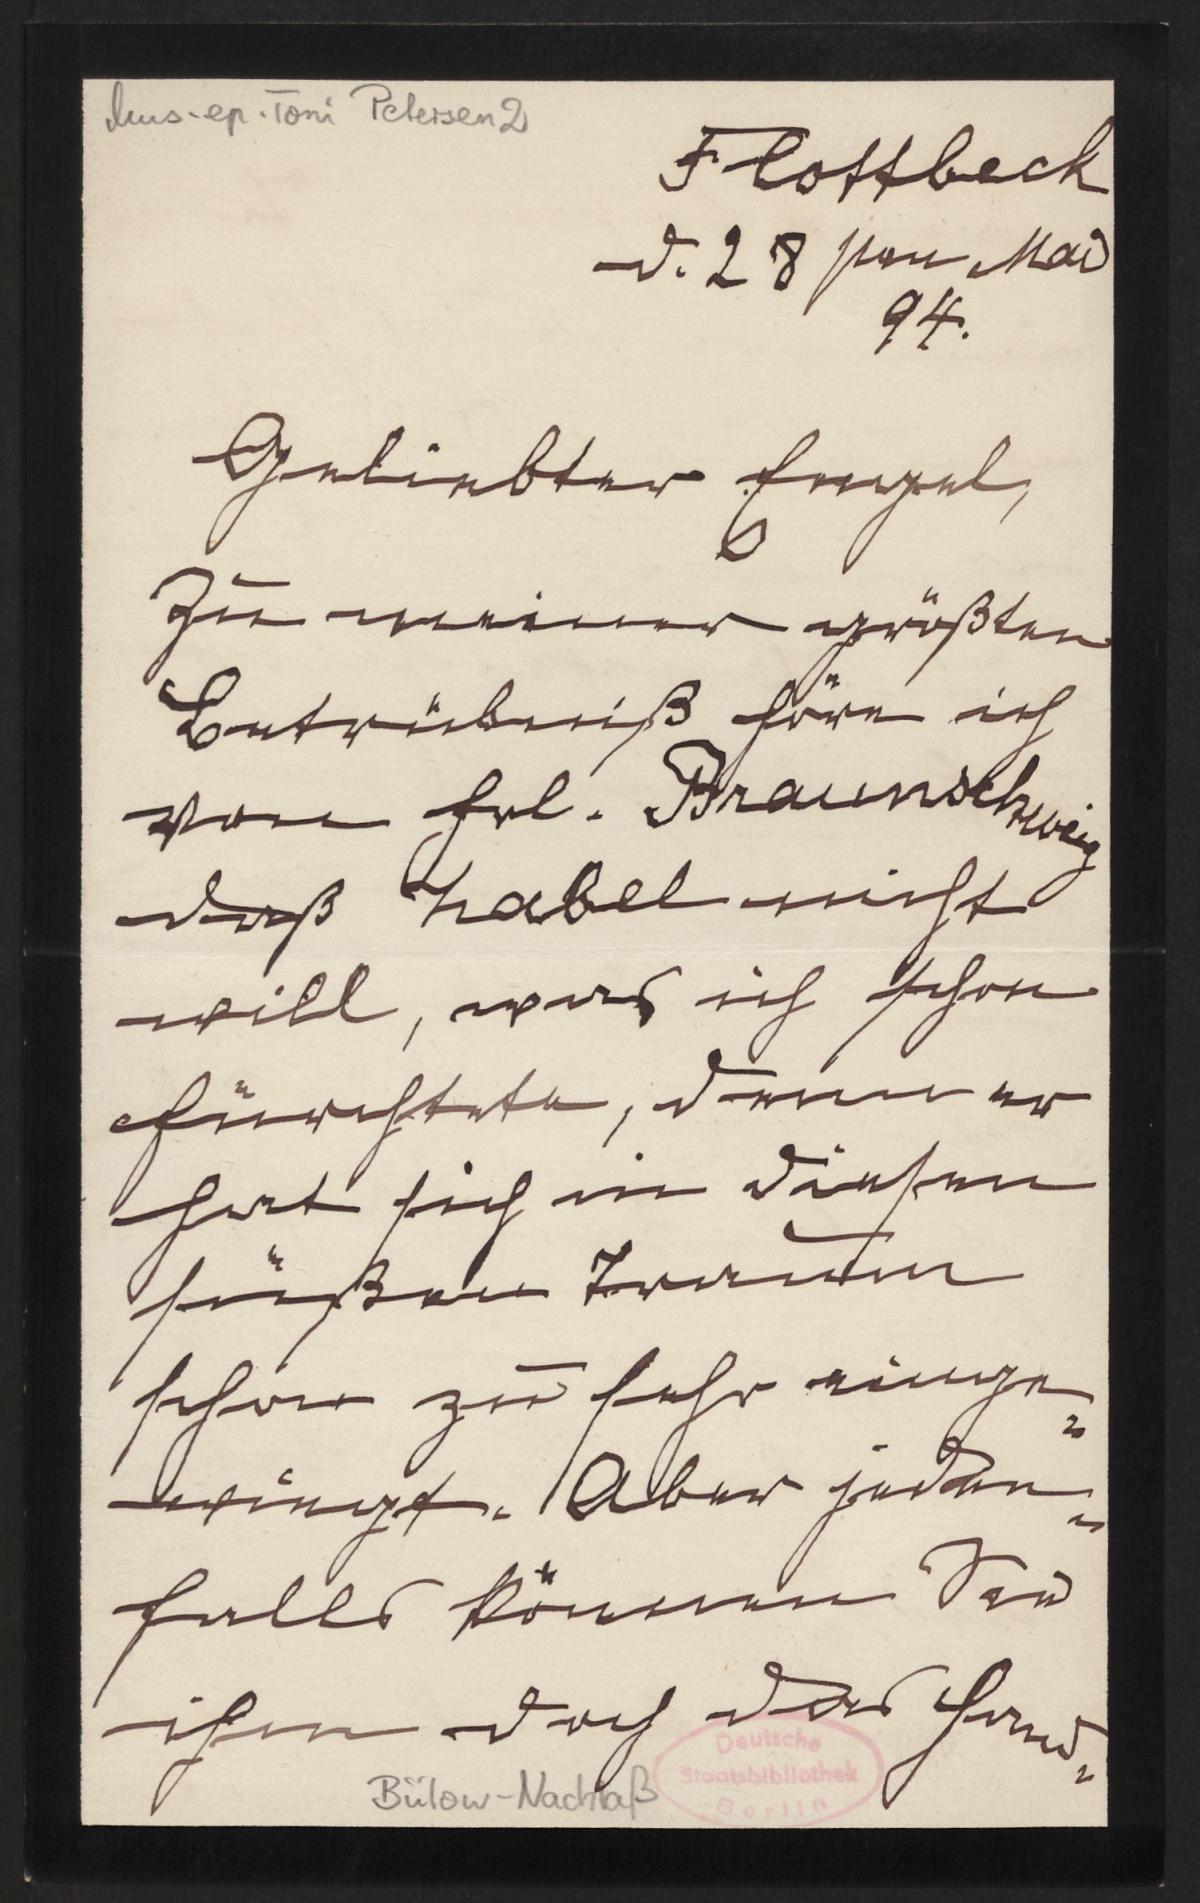 Mus. ep. Toni Petersen 2
Flottbeck
d. 28 sten Mai
94.
Geliebter Engel,
Zu meiner größten
Betrübniß höre ich
von Frl. Braunschweig
daß Zabel nicht
will, was ich schon
fürchtete, denn er
hat sich in diesen
süßen Traum
schon zu sehr einge=
wiegt. Aber jeden=
falls können Sie
ihm doch das Hand=
Bülow-Nachlaß
Deutsche
Staatsbibliothek
Berlin